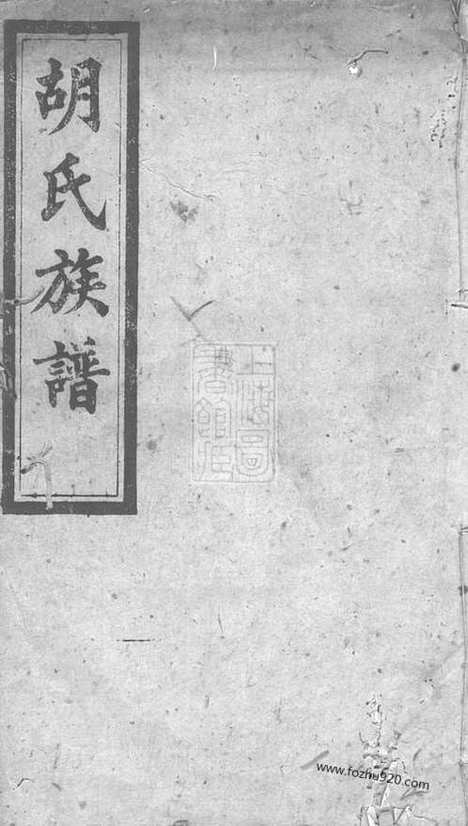 胡氏族譜
上海圖書館藏
www.fozhu920.com